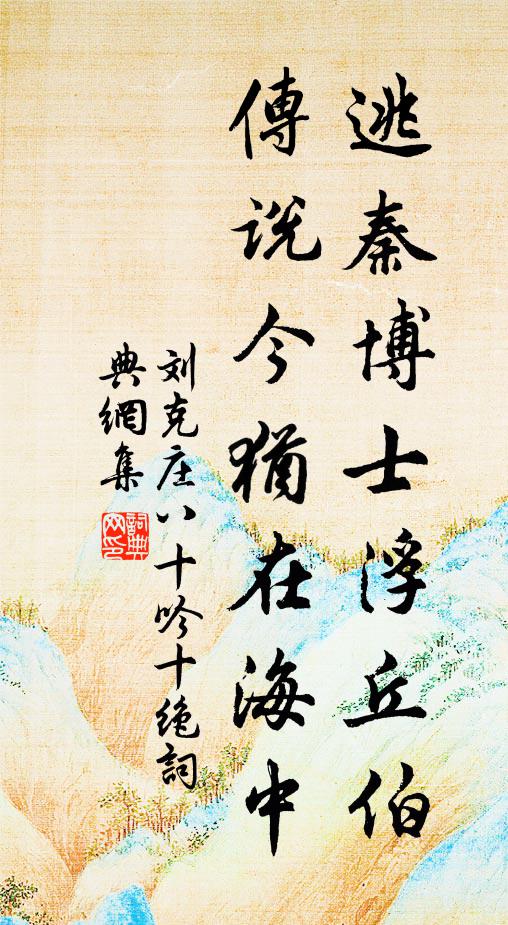 逃秦博士浮丘伯
傳說今猶在海中
刘克庄八十吟十絶詞
典網集
詞典网印